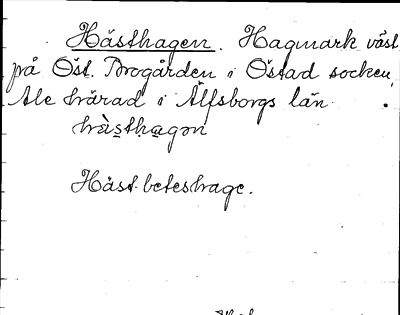 Hästhagen. Hagmark väst
på Öst. Brogården i Östad socken,
Ale härad i Älfsborgs län.
hàsthagən
Häst-beteshage.